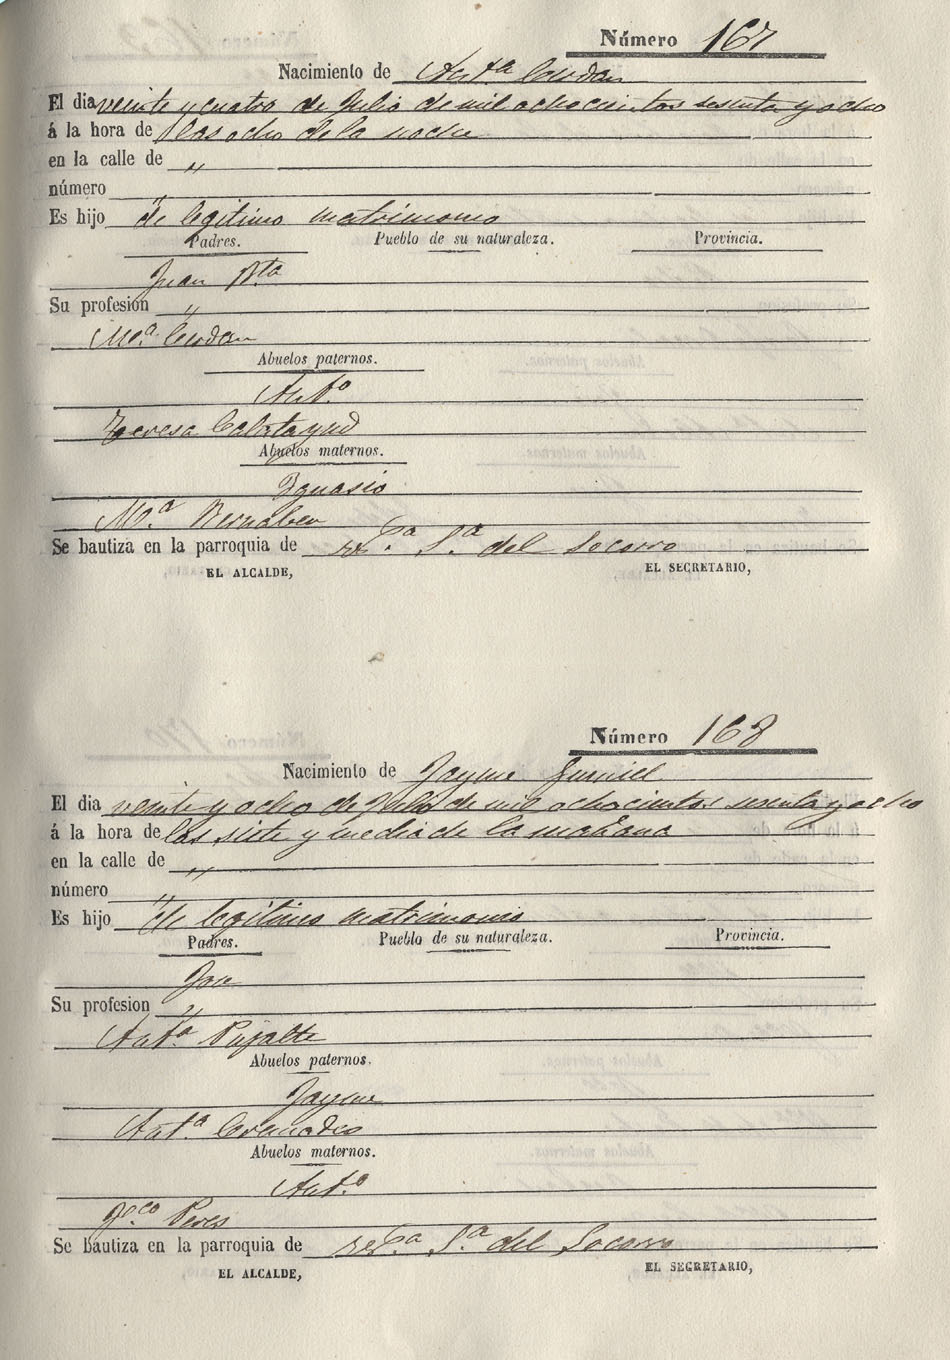 Número 167
Nacimiento de Antª Cerdan
El dia veinte y cuatro de Julio de mil ochocientos sesenta y ocho
á la hora de las ocho de la noche
en la calle de "
número "
Es hijo de legitimo matrimonio
Padres. Pueblo de su naturaleza. Provincia.
Juan Bta
Su profesion "
Mª Cerdan
Abuelos paternos.
Antº
Teresa Calatayud
Abuelos maternos.
Ygnasio
Mª Bernabeu
Se bautiza en la parroquia de Sª del Socorro
EL ALCALDE, EL SECRETARIO,
Número 168
Nacimiento de Jayme
El dia veinte y ocho de Julio de mil ochocientos sesenta y ocho
á la hora de las siete y media de la mañana
en la calle de "
número "
Es hijo de legitimo matrimonio
Padres. Pueblo de su naturaleza. Provincia.
Jose
Su profesion "
Antª Pujalte
Abuelos paternos.
Jayme
Antª
Abuelos maternos.
Antº
Peres
Se bautiza en la parroquia de Sª del Socorro
EL ALCALDE, EL SECRETARIO,